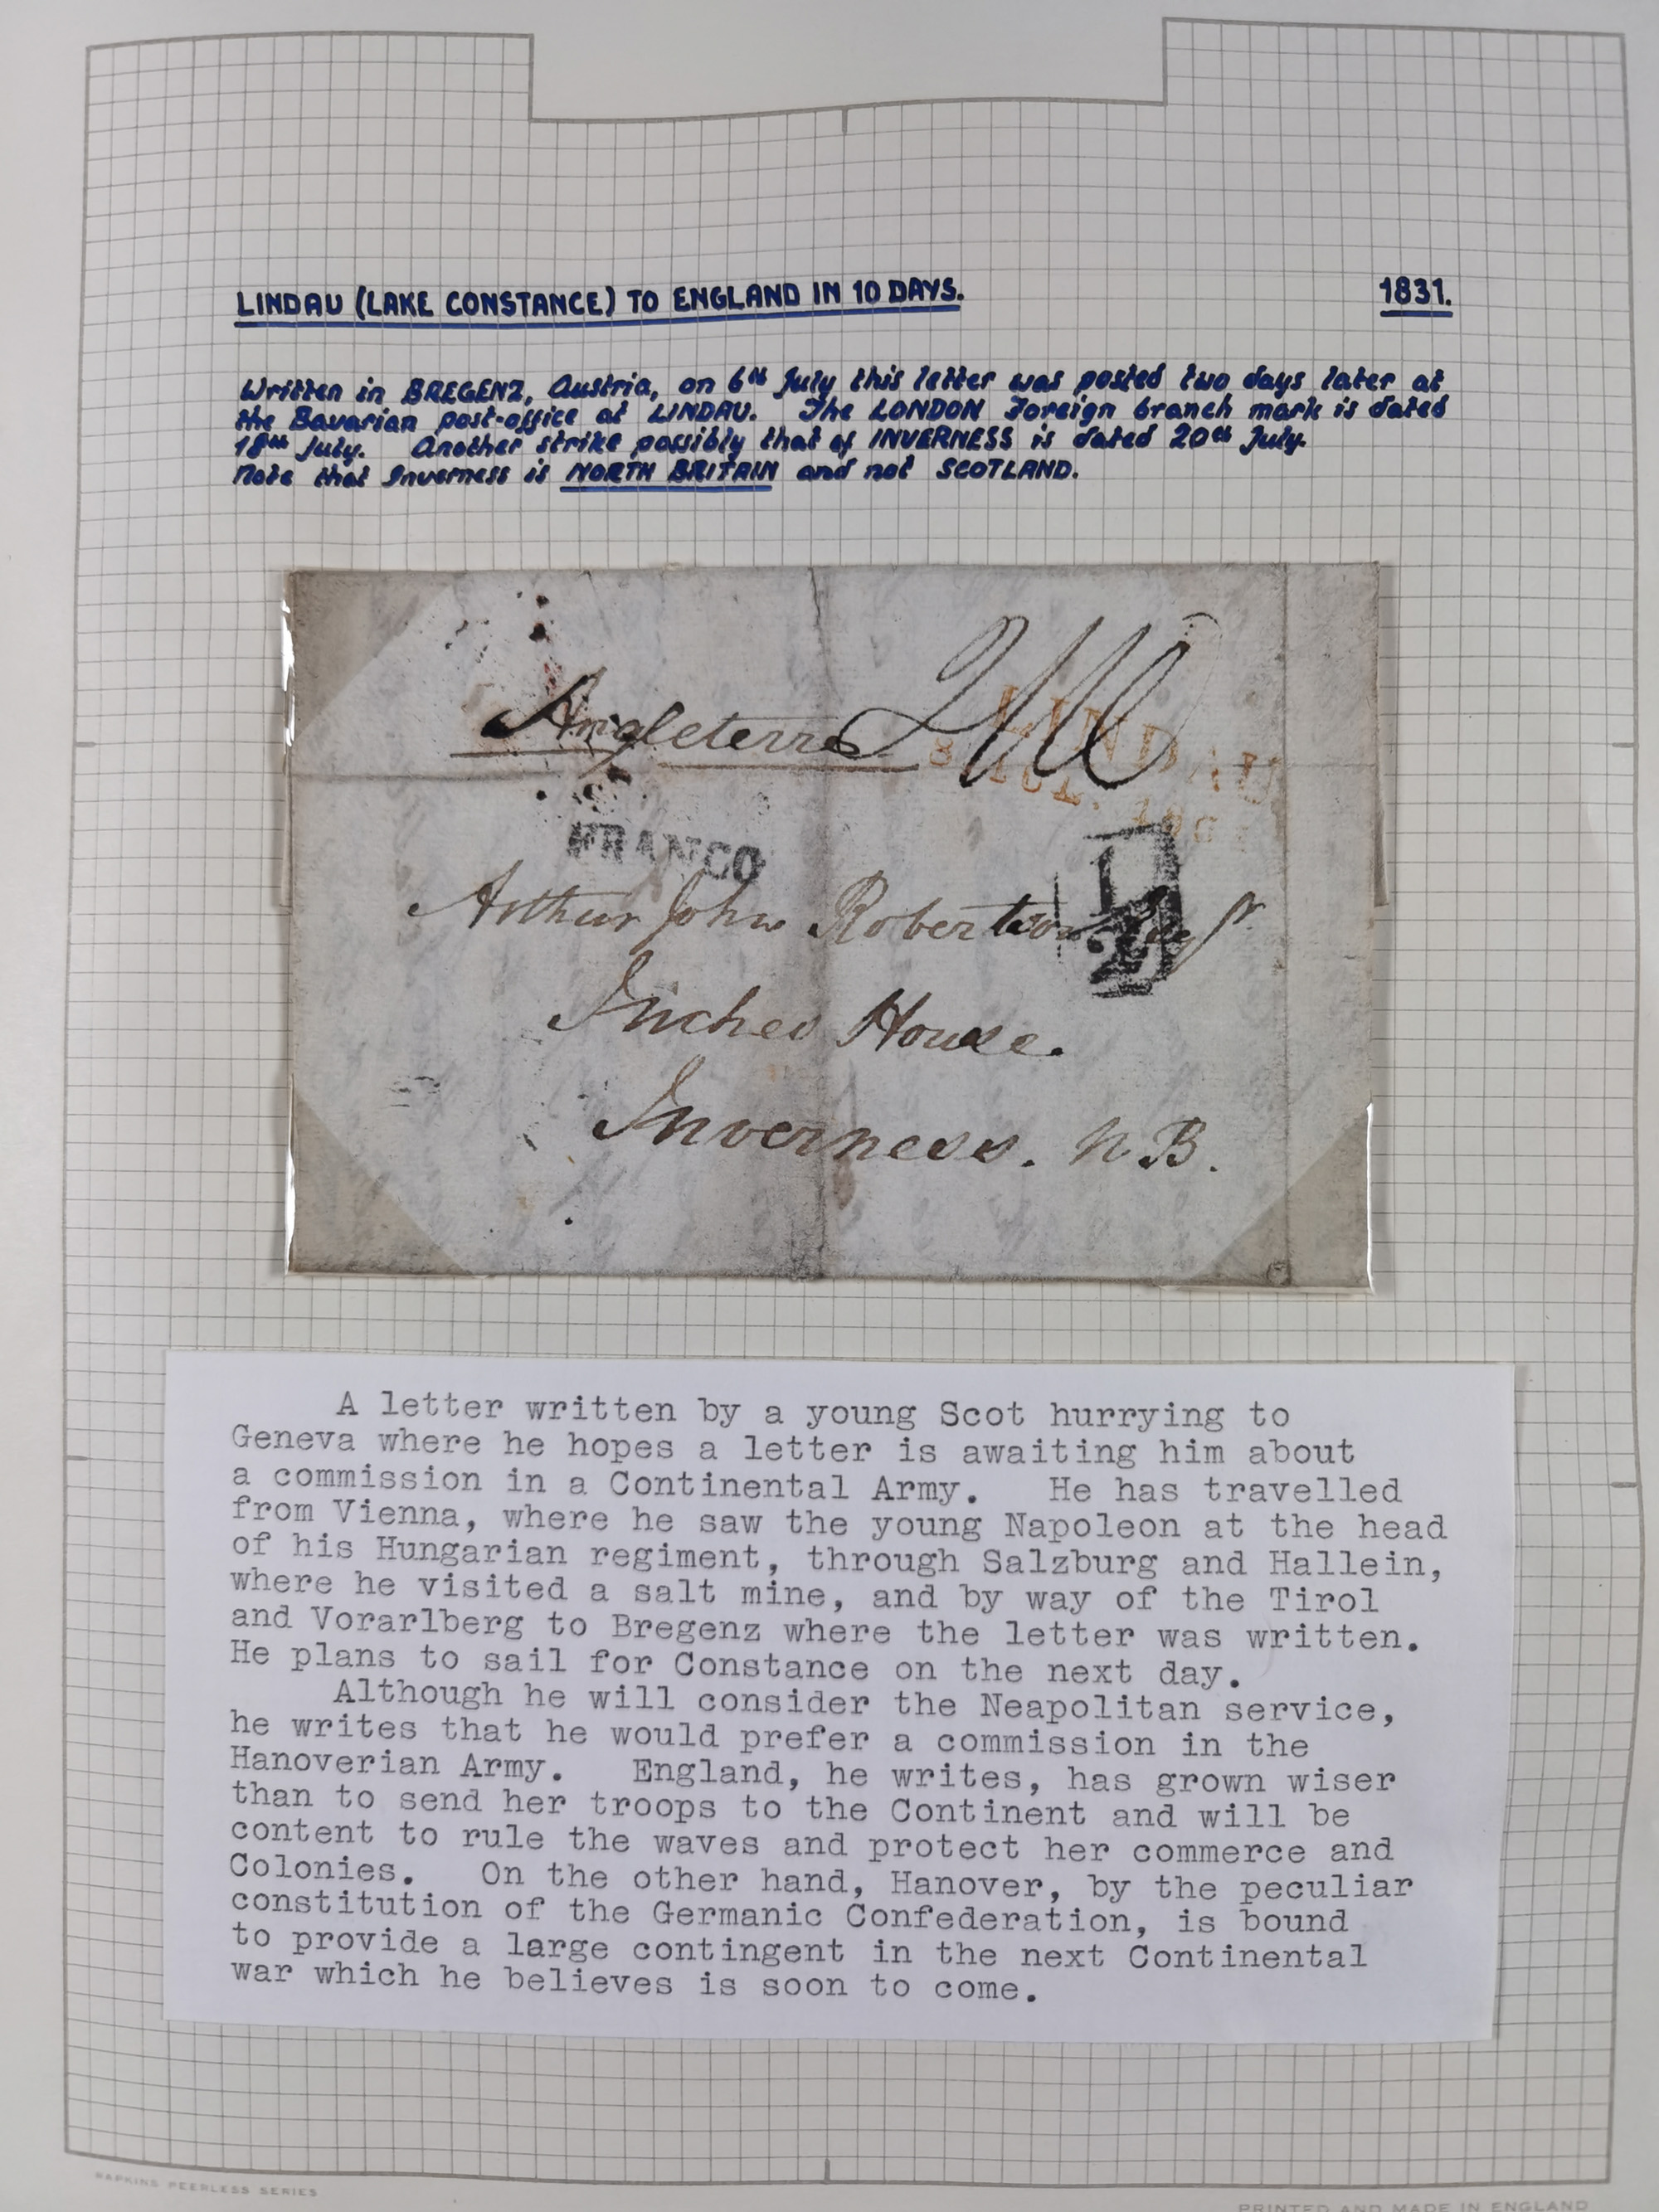 LINDAU (LAKE CONSTANCE) TO ENGLAND IN 10 DAYS. 1831.
Written in BREGENZ, Austria, on 6th July this letter was posted two days later at
the Bavarian post-office at LINDAU. The LONDON Foreign branch mark is dated
18th July. Another strike possibly that of INVERNESS is dated 20th July.
Note that Inverness is NORTH BRITAIN and not SCOTLAND.
Angleterre
LINDAU
FRANCO
Arthur John Robertson Esqr
Inches House.
Inverness. N.B.
A letter written by a young Scot hurrying to
Geneva where he hopes a letter is awaiting him about
a commission in a Continental Army. He has travelled
from Vienna, where he saw the young Napoleon at the head
of his Hungarian regiment, through Salzburg and Hallein,
where he visited a salt mine, and by way of the Tirol
and Vorarlberg to Bregenz where the letter was written.
He plans to sail for Constance on the next day.
Although he will consider the Neapolitan service,
he writes that he would prefer a commission in the
Hanoverian Army. England, he writes, has grown wiser
than to send her troops to the Continent and will be
content to rule the waves and protect her commerce and
Colonies. On the other hand, Hanover, by the peculiar
constitution of the Germanic Confederation, is bound
to provide a large contingent in the next Continental
war which he believes is soon to come.
RAPKINS PEERLESS SERIES
PRINTED AND MADE IN ENGLAND